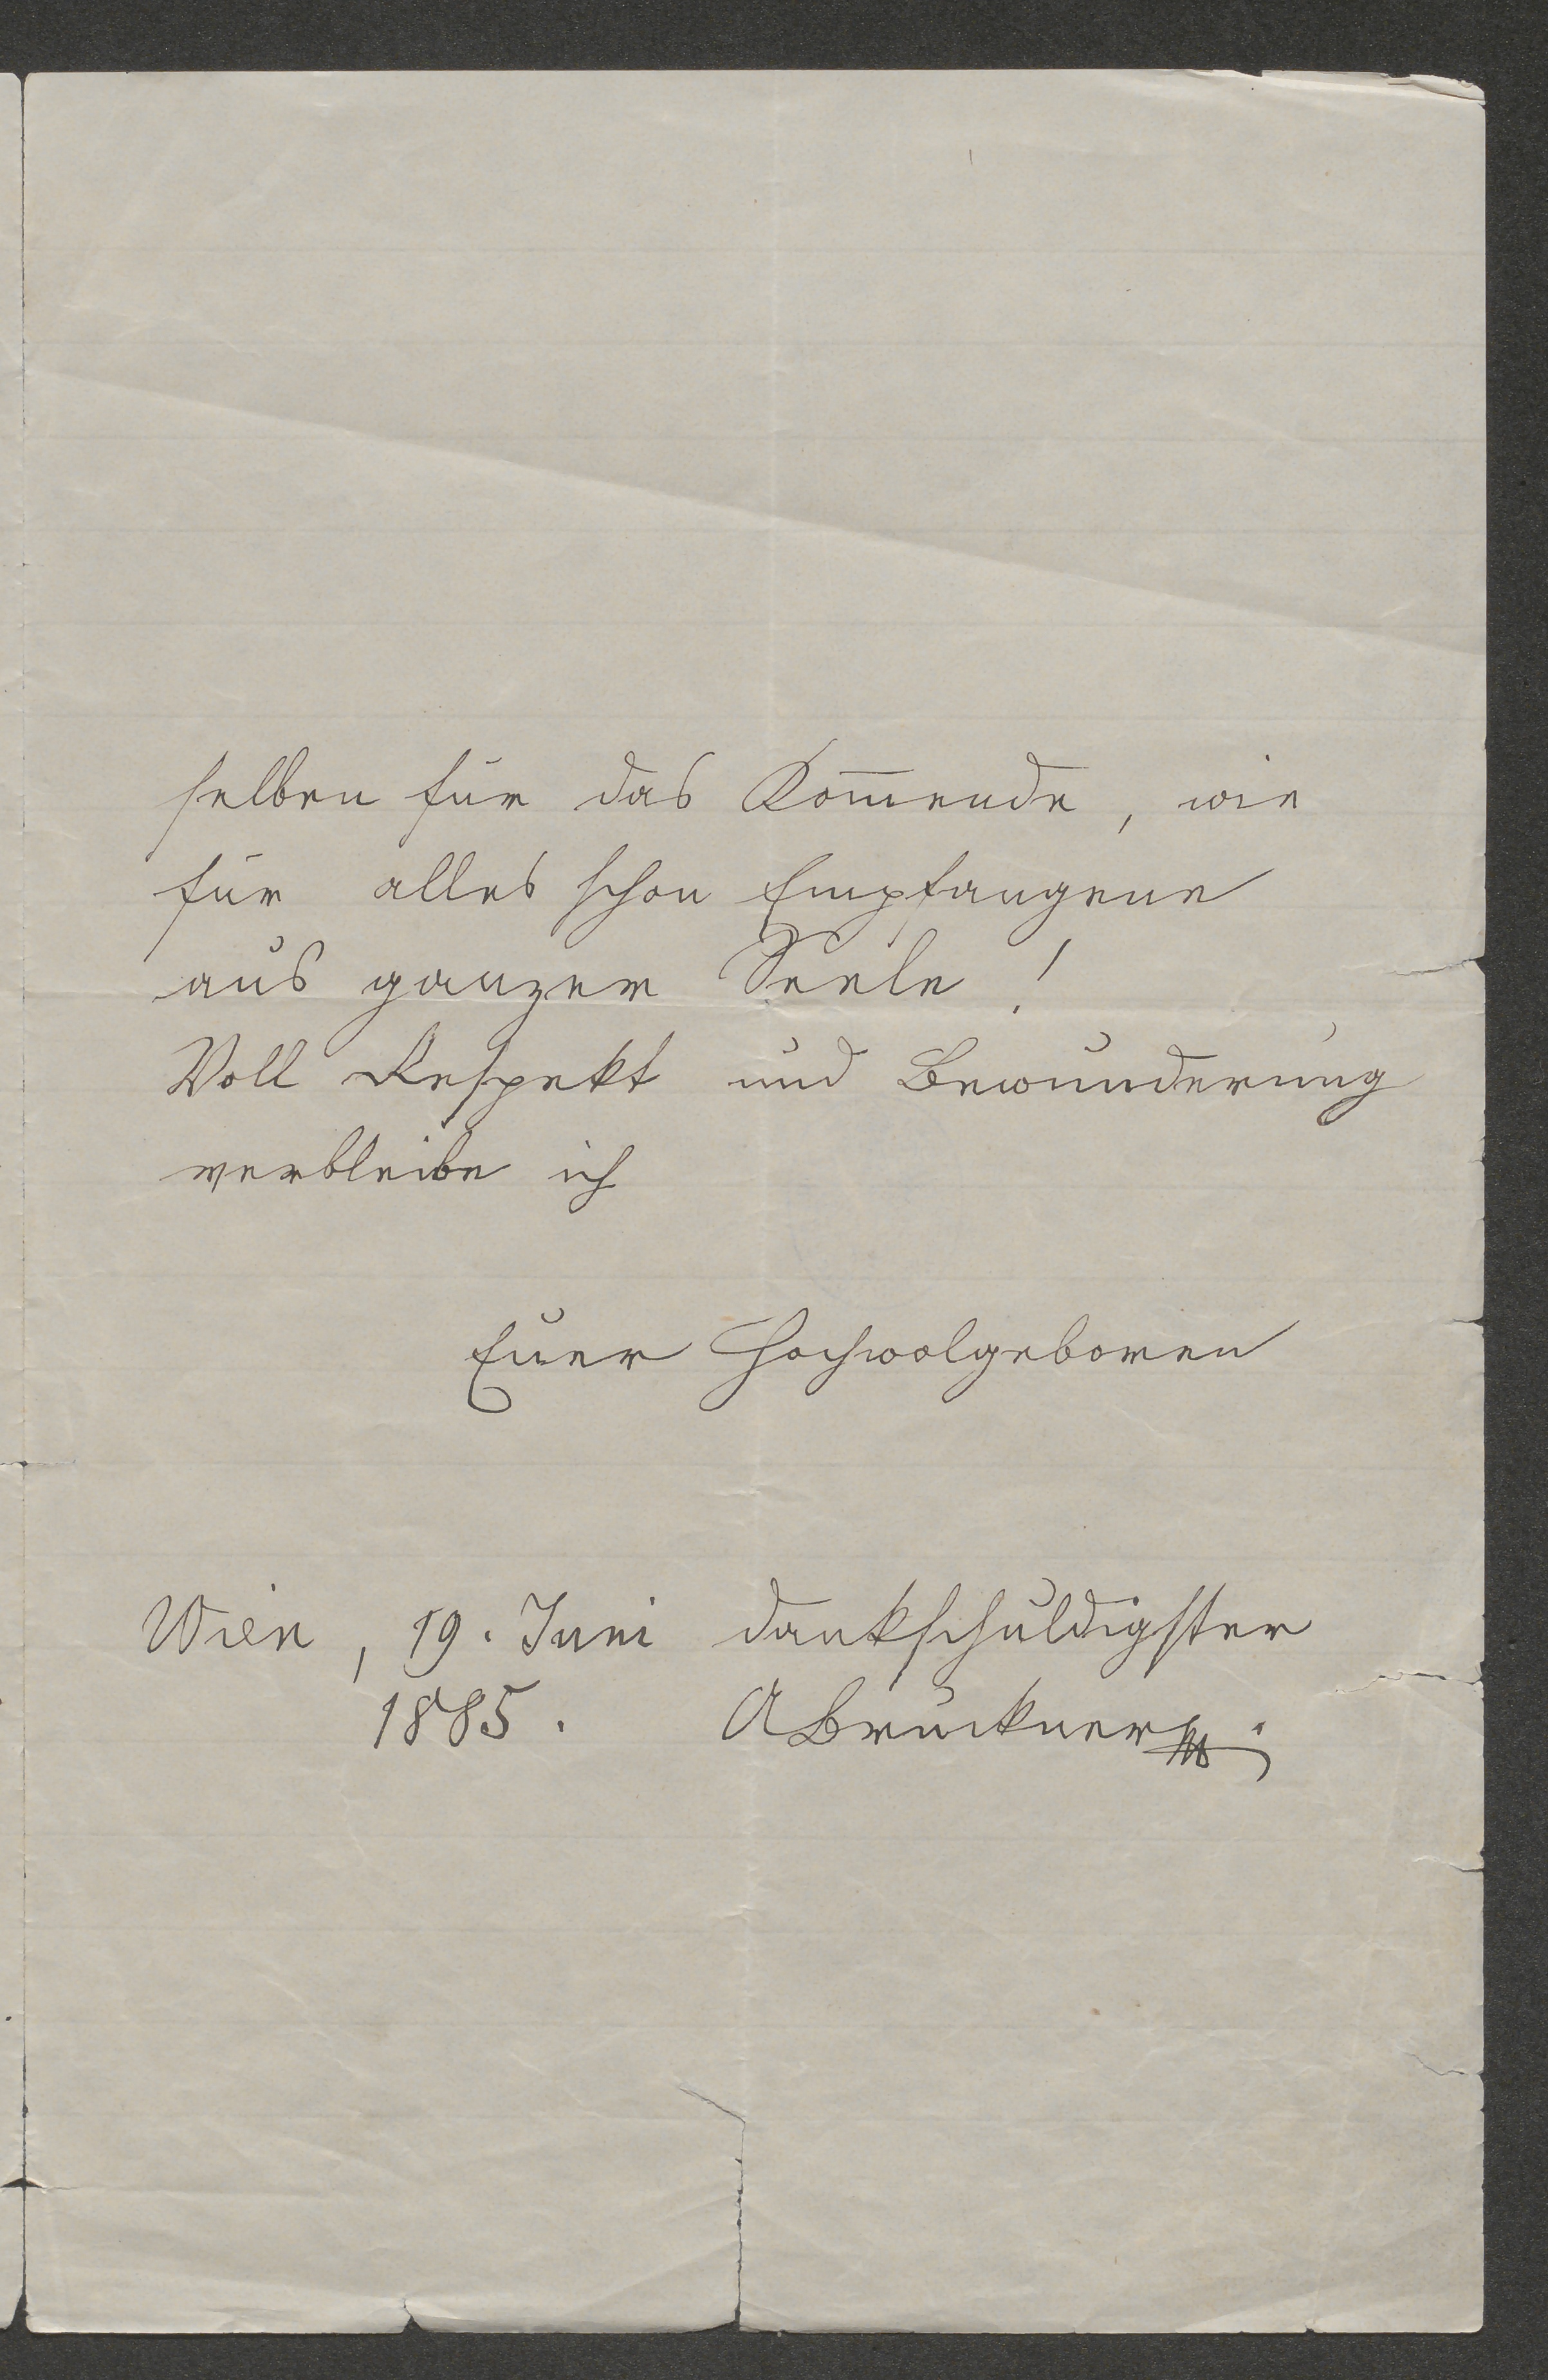 selben für das Kom̅ende, wie
für alles schon Empfangene
aus ganzer Seele!
Voll Respekt und Bewunderung
verbleibe ich
Euer Hochwolgeboren
Wien, 19. Juni dankschuldigster
1885. ABruckner